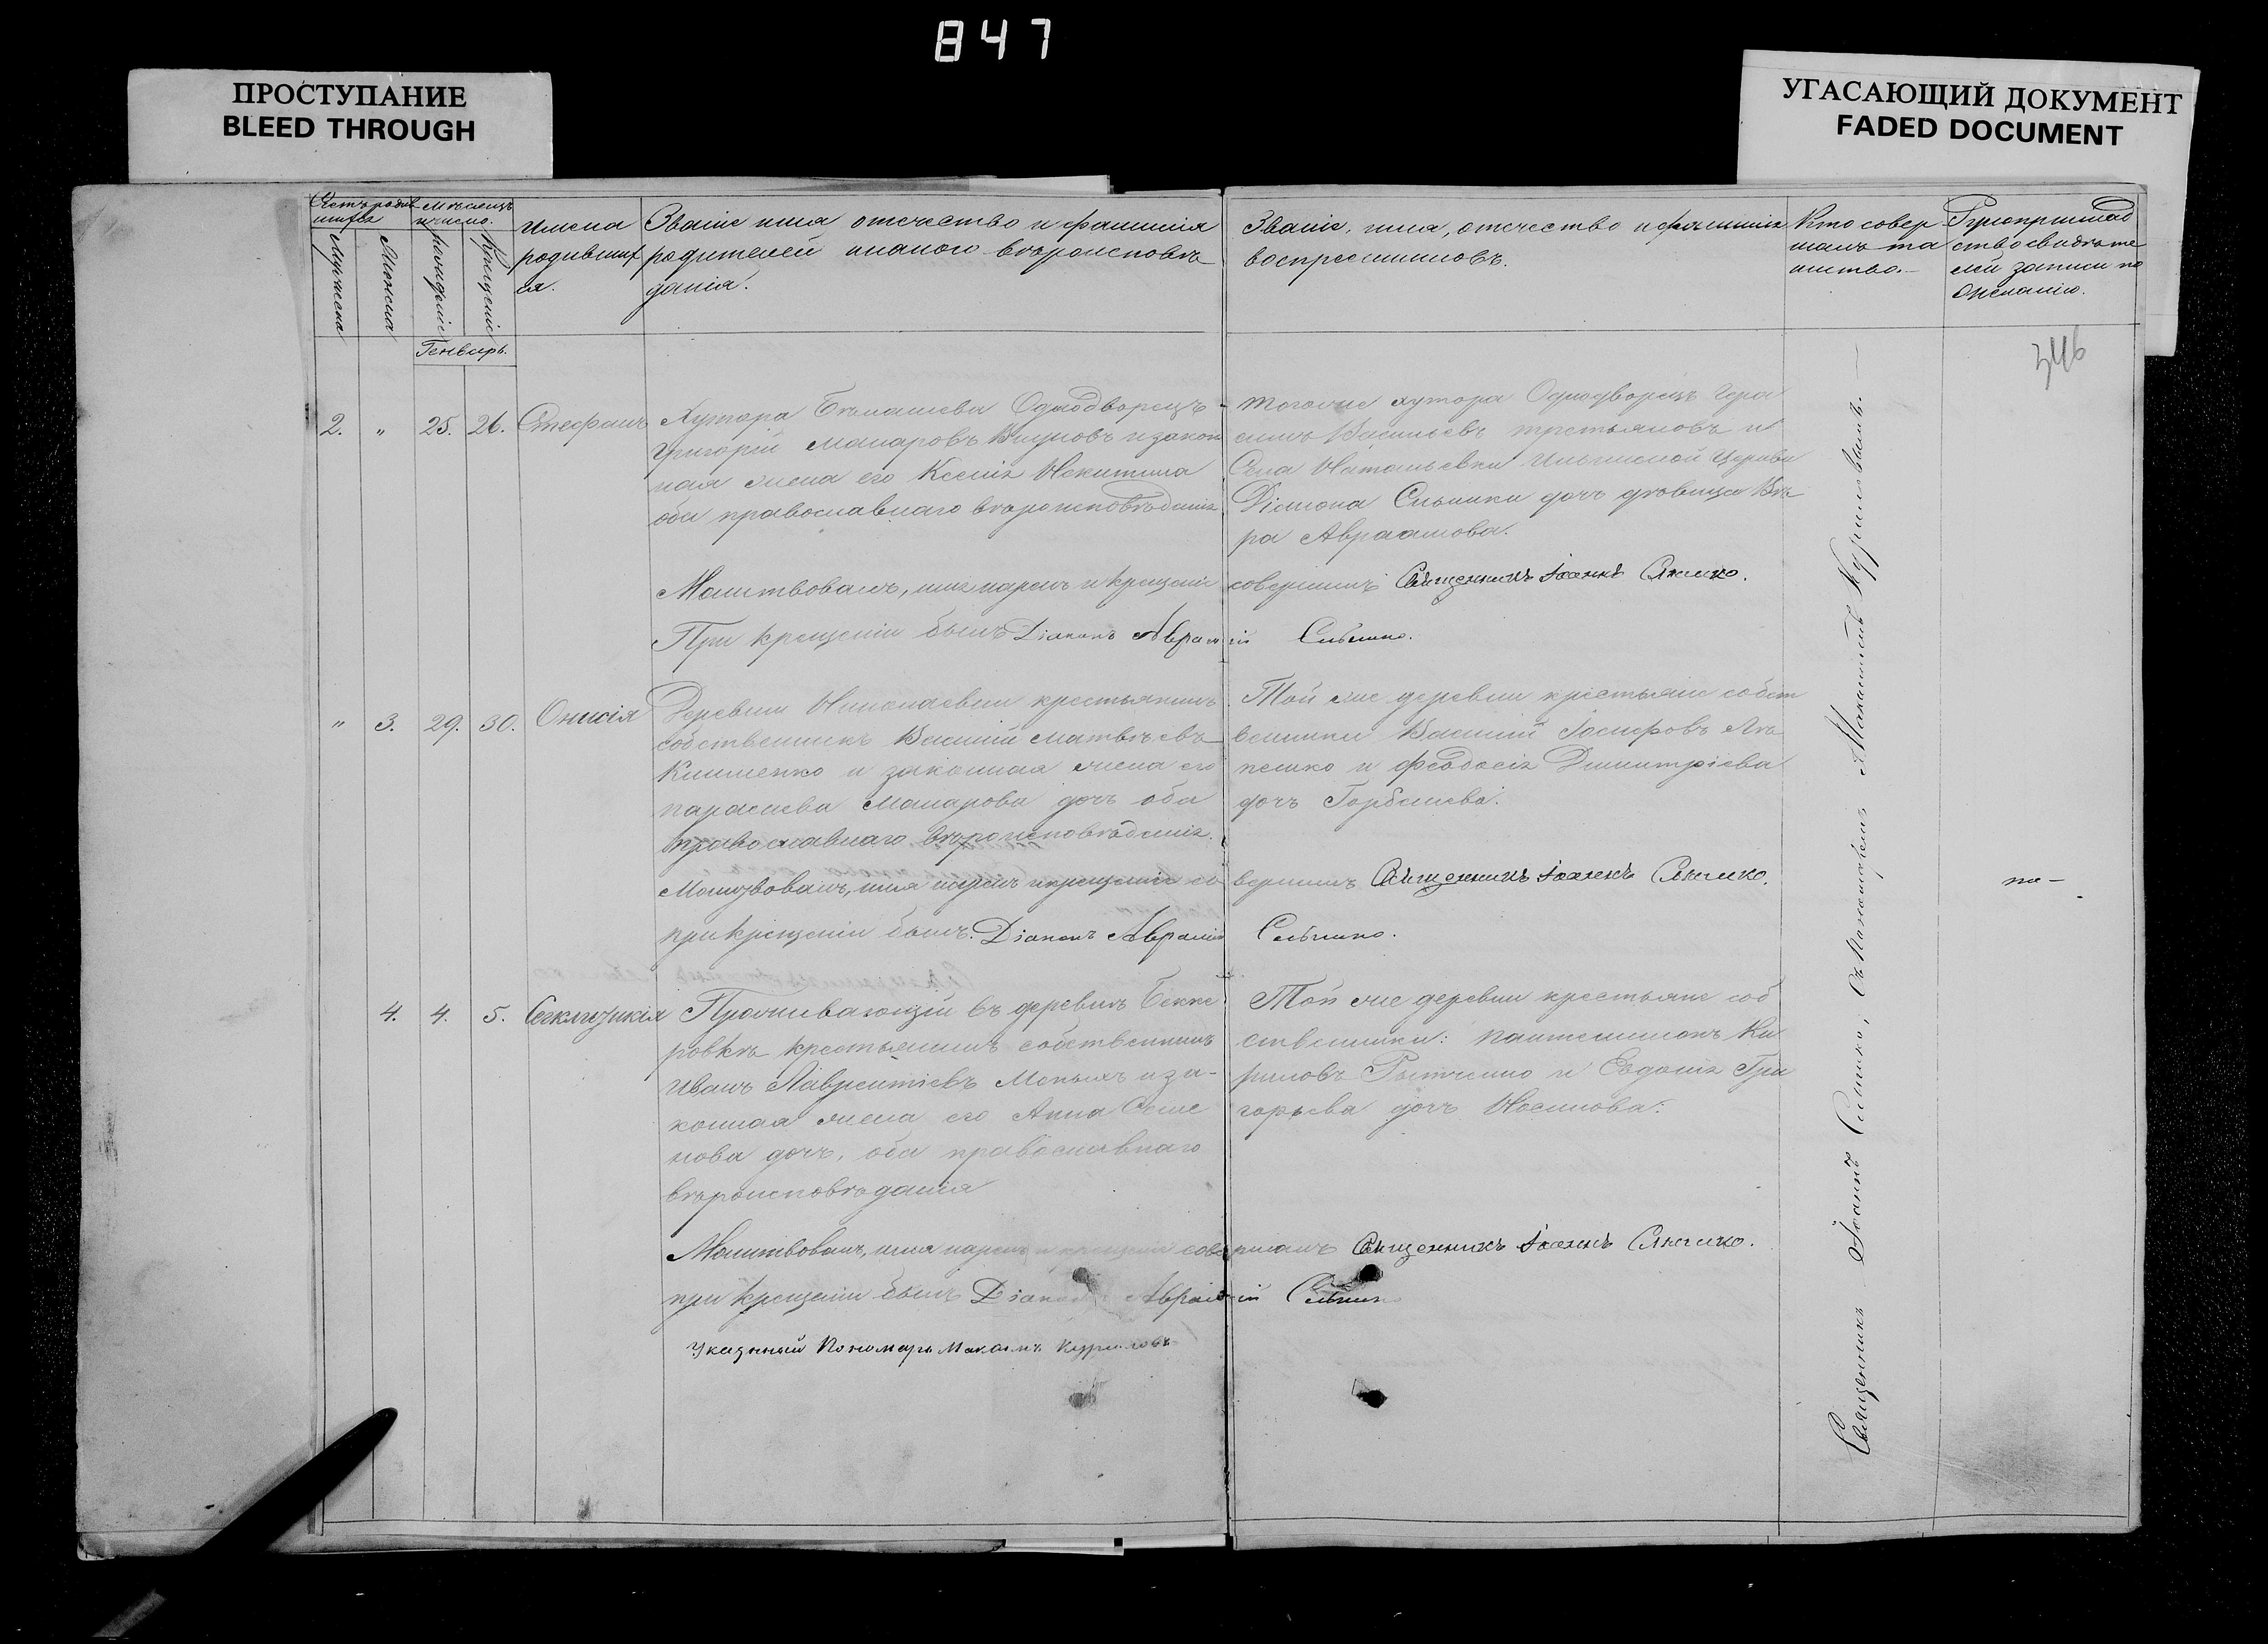 847
ПРОСТУПАНИЕ
BLEED THROUGH
УГАСАЮЩИЙ ДОКУМЕНТ
FADED DOCUMENT
Счетъ родив
шихся
Мужеска
Женска
Мѣсяцъ
и число.
рожденіе
Крещеніе
Имена
родивших
ся.
Званіе имя отчество и фамилія
родителей и какого вѣроисповѣ
данія.
Званіе, имя, отчество и фамилія
воспреемниковъ.
Кто совер
шалъ та
инство.
Рукоприклад
ство свидѣте
лей записи по
желанію.
Генварь.
346
2. " 25. 26. Стефанъ
Хутора Одnодворецъ
Григорій Макаровъ и закон
ная жена его Ксенія Никитина
оба православнаго вѣроисповѣданія
тогоже хутора Однодворецъ Гера
симъ Васильевъ Третьяковъ и
Села Натальевки Церкви
Діакона Сльпики дочь дѣвица Вѣ
ра Авраамова.
Молитвовалъ, имя нарекъ и крещеніе совершилъ Священникъ Іоаннъ
При крещеніи былъ Діаконъ Аврамій
" 3. 29. 30. Онисія
Деревни Николаевки крестьянинъ
собственникъ Василій Матвѣевъ
Клименко и законная жена его
Параскева Макарова дочь оба
православнаго вѣроисповѣданія.
Той же деревни крестьяне собст
венники Василій Іосифовъ Ля
пешко и Феодосія Димитріева
дочь Горбачева.
Молитвовалъ, имя нарекъ и крещеніе со вершилъ Священникъ Іоаннъ
при крещеніи былъ Діаконъ Аврамій
4. 4. 5. Секлитикія
Проживающій въ деревнѣ Бекке
ровкѣ крестьянинъ собственникъ
Иванъ Лаврентіевъ и за-
конная жена его Анна Семе
нова дочь, оба православнаго
вѣроисповѣданія
Той же деревни крестьяне соб
ственники: Пантелимонъ Ки
риловъ и Евдокія Гри
горьева дочь Носикова.
Молитвовалъ, имя нарекъ и крещеніе совершалъ Священникъ Іоаннъ
при крещеніи былъ Діаконъ Аврамій
Указный Пономарь Максимъ Куриловъ
Священникъ Іоаннъ съ Пономаремъ Максимомъ Куриловымъ.